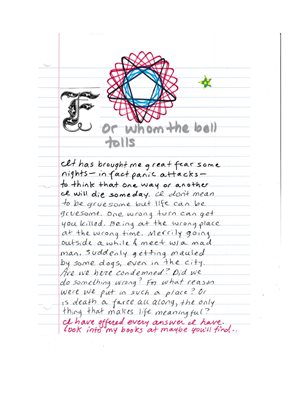 For whom the bell
tolls
It has brought me great fear some
nights—in fact panic attacks—
to think that one way or another
I will die someday. I don't mean
to be gruesome but life can be
gruesome. One wrong turn can get
you killed. Being at the wrong place
at the wrong time. Merrily going
outside a while & meet w/a mad
man. Suddenly getting mauled
by some dogs, even in the city.
Are we here condemned? Did we
do something wrong? For what reason
were we put in such a place? Or
is death a farce all along, the only
thing that makes life meaningful?
I have offered every answer I have.
Look into my books at maybe you'll find...